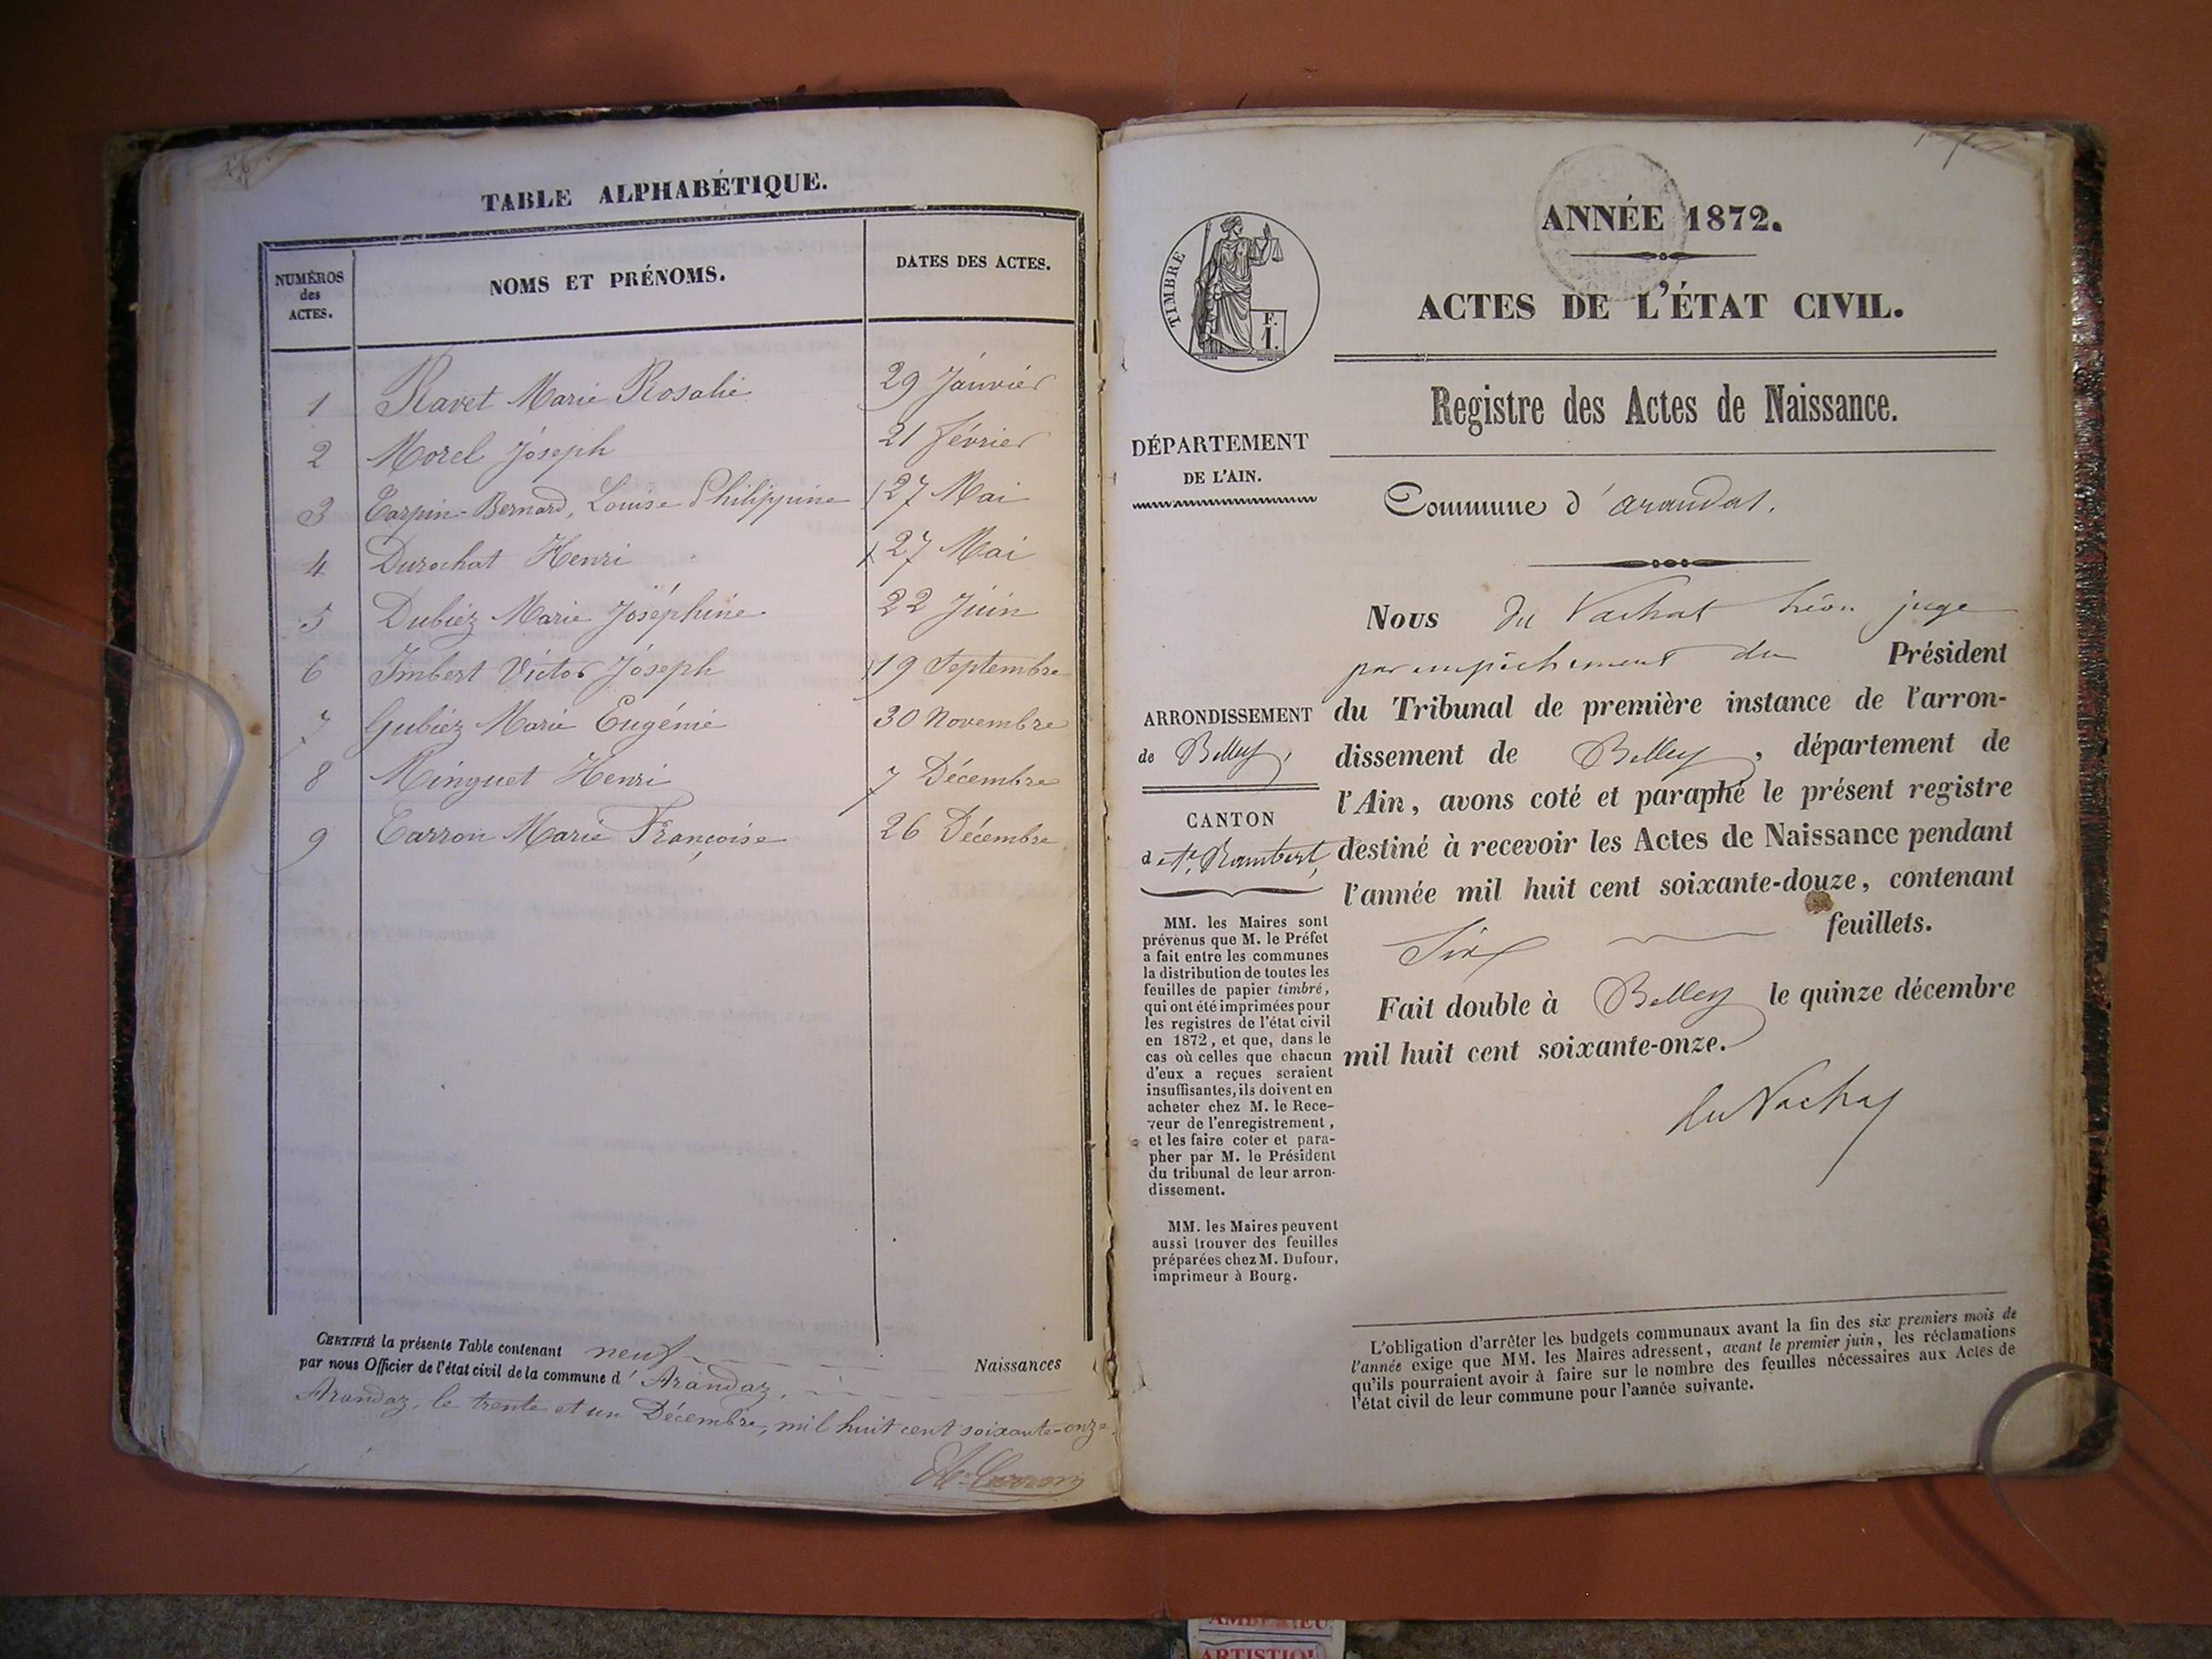 TABLE ALPHABÉTIQUE.
NUMÉROS
des
ACTES.
NOMS ET PRÉNOMS.
DATES DES ACTES.
1 Ravet Marie Rosalie 29 Janvier
2 Morel Joseph 21 Février
3 Carpin-Bernard, Louise Philippine 27 Mai
4 Durochat Henri 27 Mai
5 Dubiez Marie Joséphine 22 Juin
6 Imbert Victor Joseph 19 Septembre
7 Gubiez Marie Eugénie 30 Novembre
8 Minguet Henri 7 Décembre
9 Carron Marie Françoise 26 Décembre
CERTIFIÉ la présente Table contenant neuf Naissances
par nous Officier de l'état civil de la commune d' Arandaz,
Arandaz, le trente et un Décembre, mil huit cent soixante-onze.
Carron
TIMBRE
F.
1.
ANNÉE 1872.
ACTES DE L'ÉTAT CIVIL.
Registre des Actes de Naissance.
DÉPARTEMENT
DE L'AIN.
Commune d'arandas.
Nous du Vachat Léon juge
par empêchement du Président
du Tribunal de première instance de l'arron-
dissement de Belley, département de
l'Ain, avons coté et paraphé le présent registre
destiné à recevoir les Actes de Naissance pendant
l'année mil huit cent soixante-douze, contenant
Six feuillets.
Fait double à Belley le quinze décembre
mil huit cent soixante-onze.
du Vachat
ARRONDISSEMENT
de Belley,
CANTON
de St. Rambert,
MM. les Maires sont
prévenus que M. le Préfet
a fait entre les communes
la distribution de toutes les
feuilles de papier timbré,
qui ont été imprimées pour
les registres de l'état civil
en 1872, et que, dans le
cas où celles que chacun
d'eux a reçues seraient
insuffisantes, ils doivent en
acheter chez M. le Rece-
veur de l'enregistrement,
et les faire coter et para-
pher par M. le Président
du tribunal de leur arron-
dissement.
MM. les Maires peuvent
aussi trouver des feuilles
préparées chez M. Dufour,
imprimeur à Bourg.
L'obligation d'arrêter les budgets communaux avant la fin des six premiers mois de
l'année exige que MM. les Maires adressent, avant le premier juin, les réclamations
qu'ils pourraient avoir à faire sur le nombre des feuilles nécessaires aux Actes de
l'état civil de leur commune pour l'année suivante.